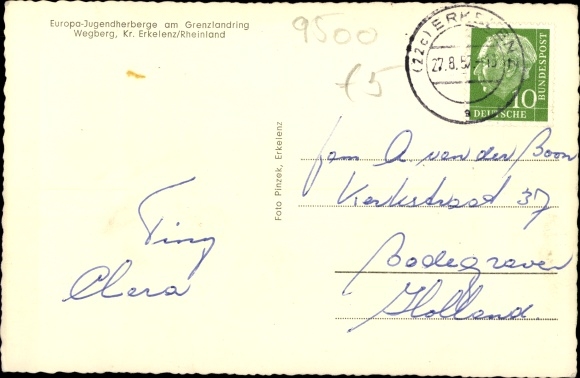 Europa-Jugendherberge am Grenzlandring
Wegberg, Kr. Erkelenz/Rheinland
9500
£5
(22c) ERKELENZ
27.8.57
a
10
DEUTSCHE
BUNDESPOST
Foto Pinzek, Erkelenz
Fam A van der Boon
Kerkstraat 37
Bodegraven
Holland.
Tiny
Clara